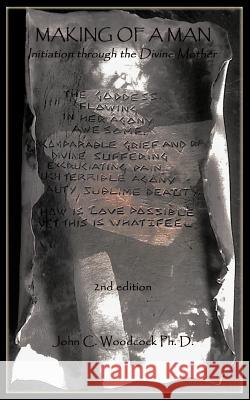 MAKING OF A MAN
Initiation through the Divine Mother
THE GODDESS
FLOWING
IN HER AGONY
AWESOME
GRIEF AND
DIVINE SUFFERING
EXCRUCIATING PAIN
TERRIBLE AGONY
SUBLIME BEAUTY
HOW IS LOVE POSSIBLE
YET THIS IS WHAT I FEEL
2nd edition
John C. Woodcock Ph. D.
krizky.sk